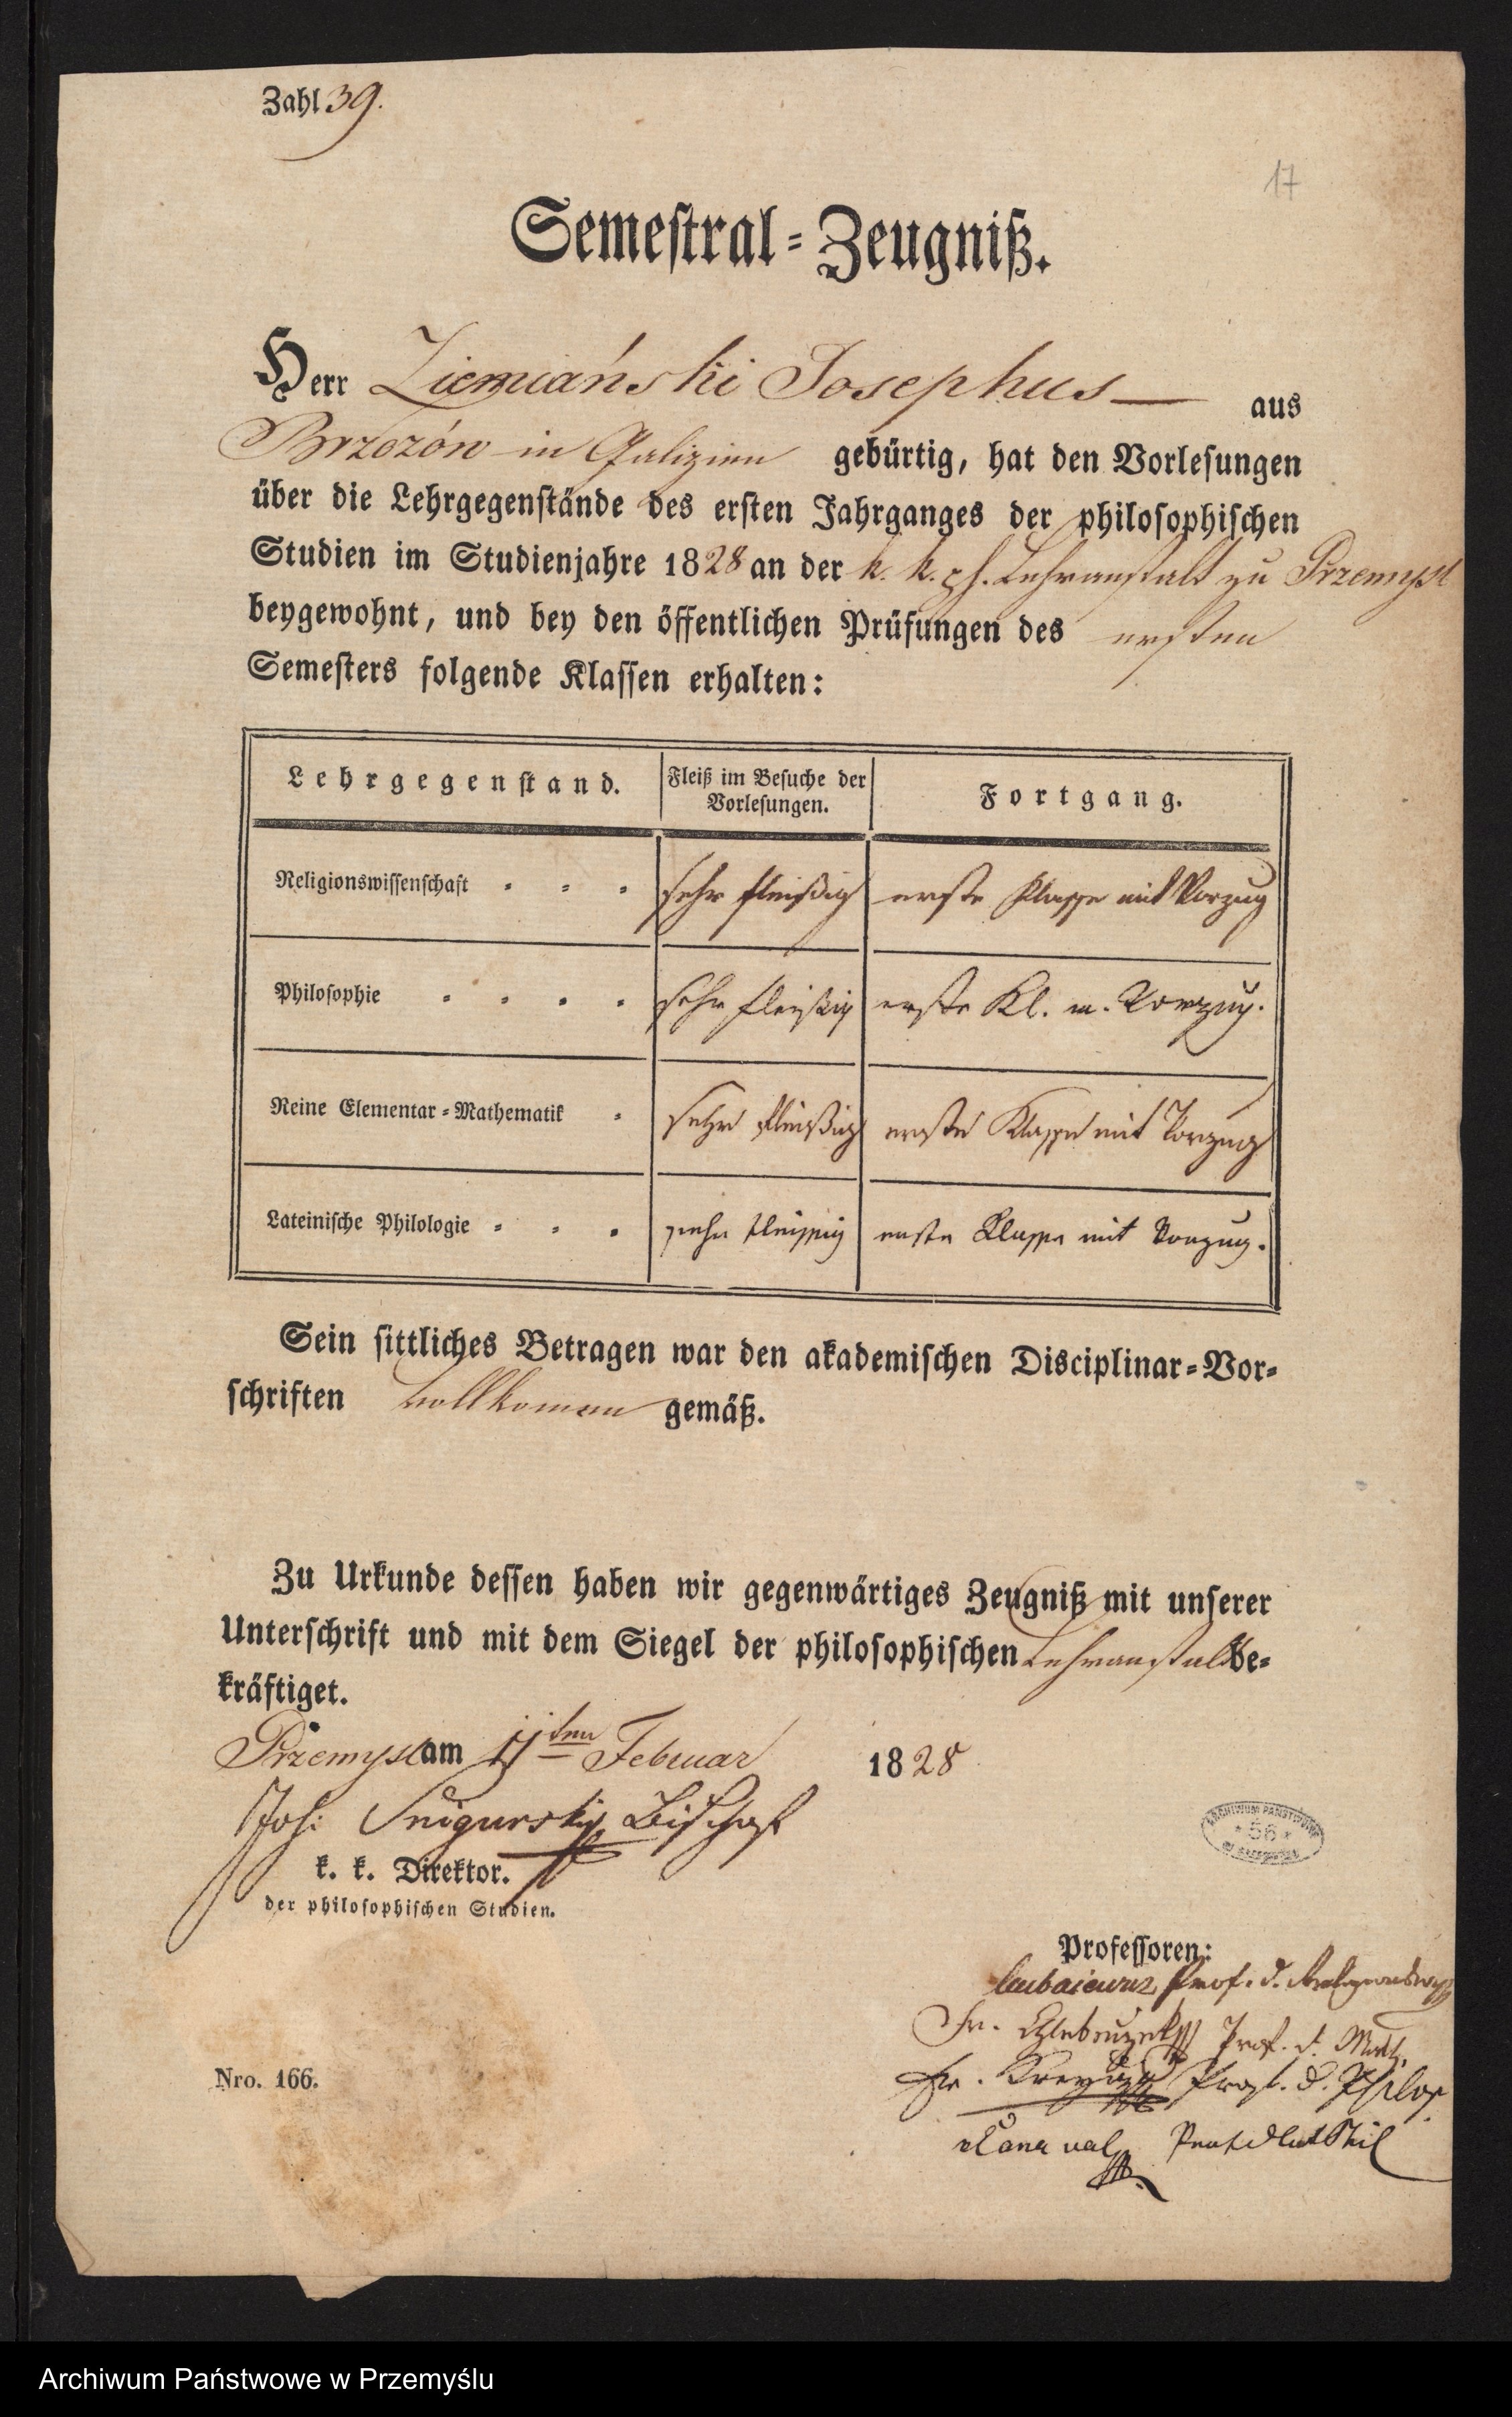 Zahl 39.
17
Semeſtral-Zeugniß.
Herr Ziemiański Josephus — aus
Brzozów in Galizien gebürtig, hat den Vorleſungen
über die Lehrgegenſtände des erſten Jahrganges der philoſophiſchen
Studien im Studienjahre 1828 an der k. k. ph. Lehranſtalt zu Przemysl
beygewohnt, und bey den öffentlichen Prüfungen des erſten
Semeſters folgende Klaſſen erhalten:
Lehrgegenſtand. Fleiß im Beſuche der Vorleſungen. Fortgang.
Religionswiſſenſchaft - - - ſehr fleißig erſte Klaſſe mit Vorzug
Philoſophie - - - - ſehr fleißig erſte Kl. m. Vorzug.
Reine Elementar-Mathematik - ſehr fleißig erſte Klaſſe mit Vorzug
Lateiniſche Philologie - - - ſehr fleiſſig erſte Klaſſe mit Vorzug.
Sein ſittliches Betragen war den akademiſchen Disciplinar-Vor-
ſchriften vollkomen gemäß.
Zu Urkunde deſſen haben wir gegenwärtiges Zeugniß mit unſerer
Unterſchrift und mit dem Siegel der philoſophiſchen Lehranſtalt be-
kräftiget.
Przemysl am ten Februar 1828
Joh: Snigursky Biſchof
k. k. Direktor.
der philoſophiſchen Studien.
ARCHIWUM PAŃSTWOWE
* 56 *
Profeſſoren:
Prof. d. Religionswiſſ
Fr. Prof. d. Math.
Fr. Prof. d. Philoſ.
Prof d lat Phil
Nro. 166.
Archiwum Państwowe w Przemyślu